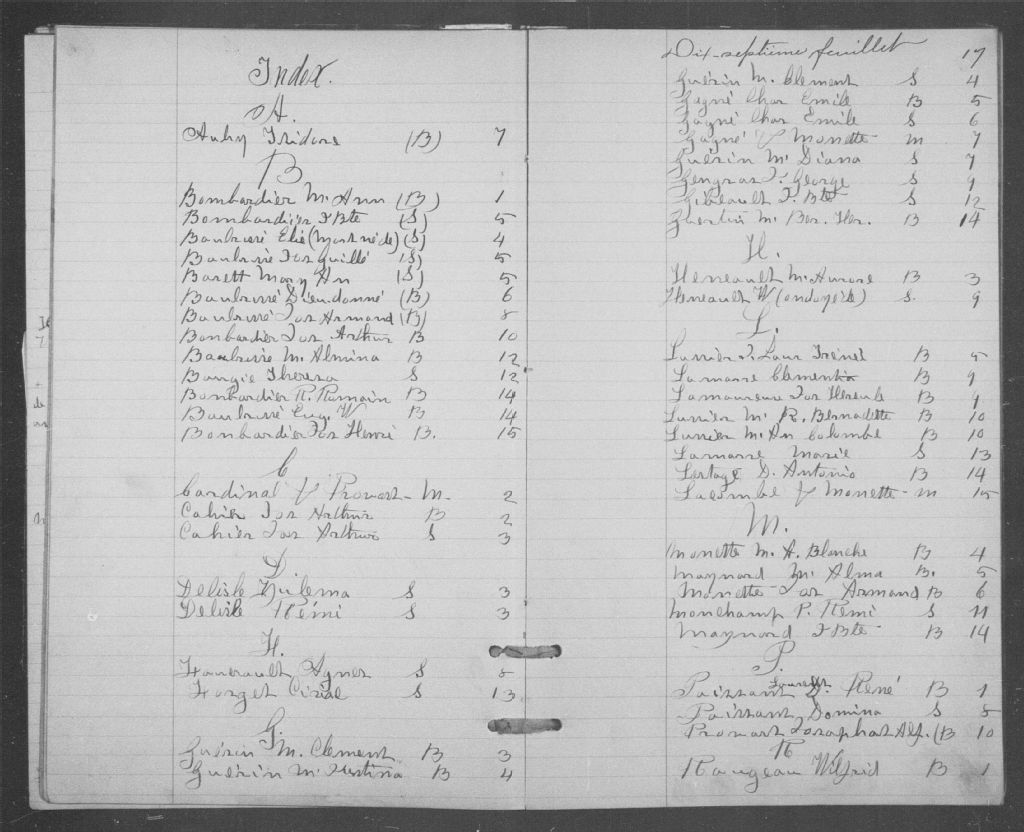 Index.
A.
Auhy Isidore (B) 7
B
Bombardier M. Ann (B) 1
Bombardier J Bte (S) 5
Baulné Elie (Mort né de) (S) 4
(S) 5
Barett Mary An (S) 5
Dieudonné (B) 6
Jos Armand (B) 8
Bombardier Jos Arthur B 10
M. Almina B 12
Bougie Theresa S 12
Bombardier R. Romain B 14
Eug. W B 14
Bombardier Jos Henri B. 15
C
Cardinal & Provost - M. 2
Cahier Jos Arthur B 2
Cahier Jos Arthur S 3
D
Delisle S 3
Delisle Rémi S 3
F.
Agnes S 8
Forget S 13
G.
Guérin M. Clement B 3
Guérin M. B 4
Dix-septième feuillet 17
Guérin M. Clement S 4
Gagné Chas Emile B 5
Gagné Chas Emile S 6
Gagné & Monette m 7
Guérin M. Diana S 7
Gengras J. George S 9
Gibeault J. Bte S 12
Guertin M. Ber. Her. B 14
H.
Heneault M. Aurore B 3
Heneault W (ondoyée) S. 9
L.
B 5
Lamarre Clementia B 9
Lamoureux Jos Hercule B 9
Lussier M. R. Bernadette B 10
Lussier M. An Colombe B 10
Lamarre Marie S 13
Lestage D. Antonio B 14
Lacombe & Monette - m 15
M.
Monette M. A. Blanche B 4
Maynard M. Alma B. 5
Monette Jos Armand B 6
Monchamp P. Remi S 11
Maynard J Bte B 14
P.
Poissant D. René B 1
Poissant Domina S 8
Provost Josaphat Alf. (B 10
R
Rougeau Wilfrid B 1